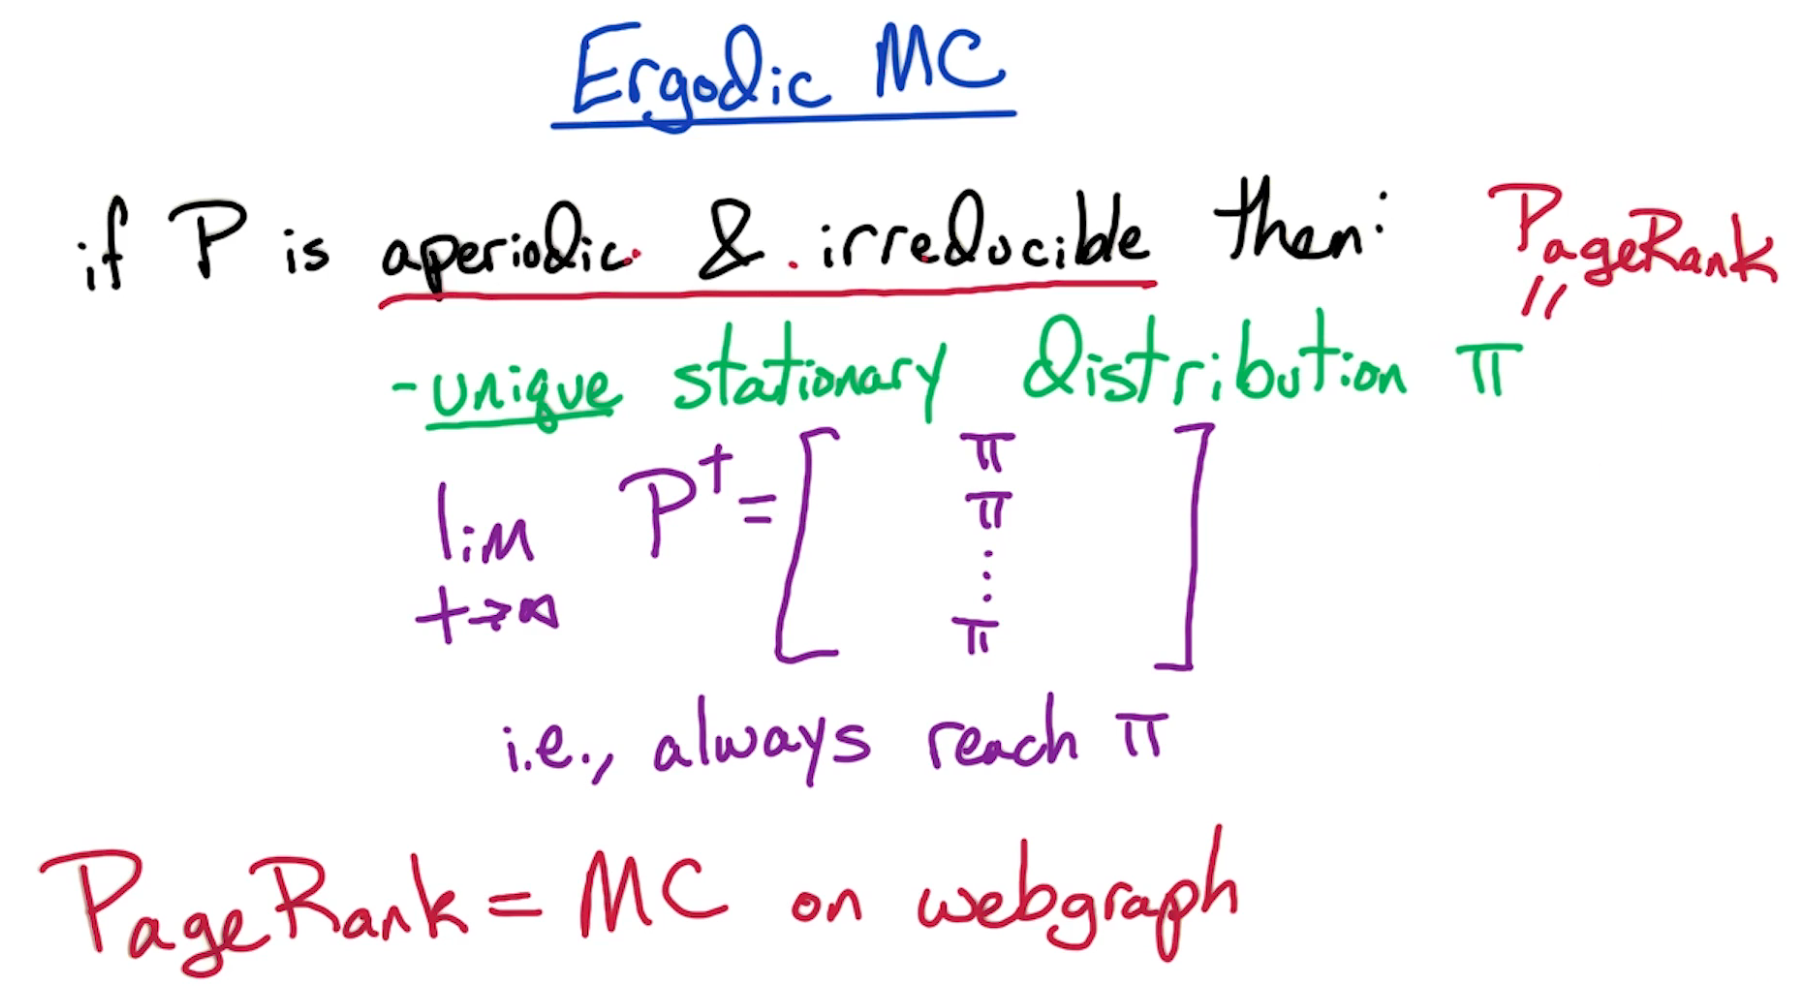 Ergodic MC
if P is aperiodic & irreducible then: PageRank
=
-unique stationary distribution π
lim t→∞ P^t = [ π π ⋮ π ]
i.e., always reach π
PageRank = MC on webgraph